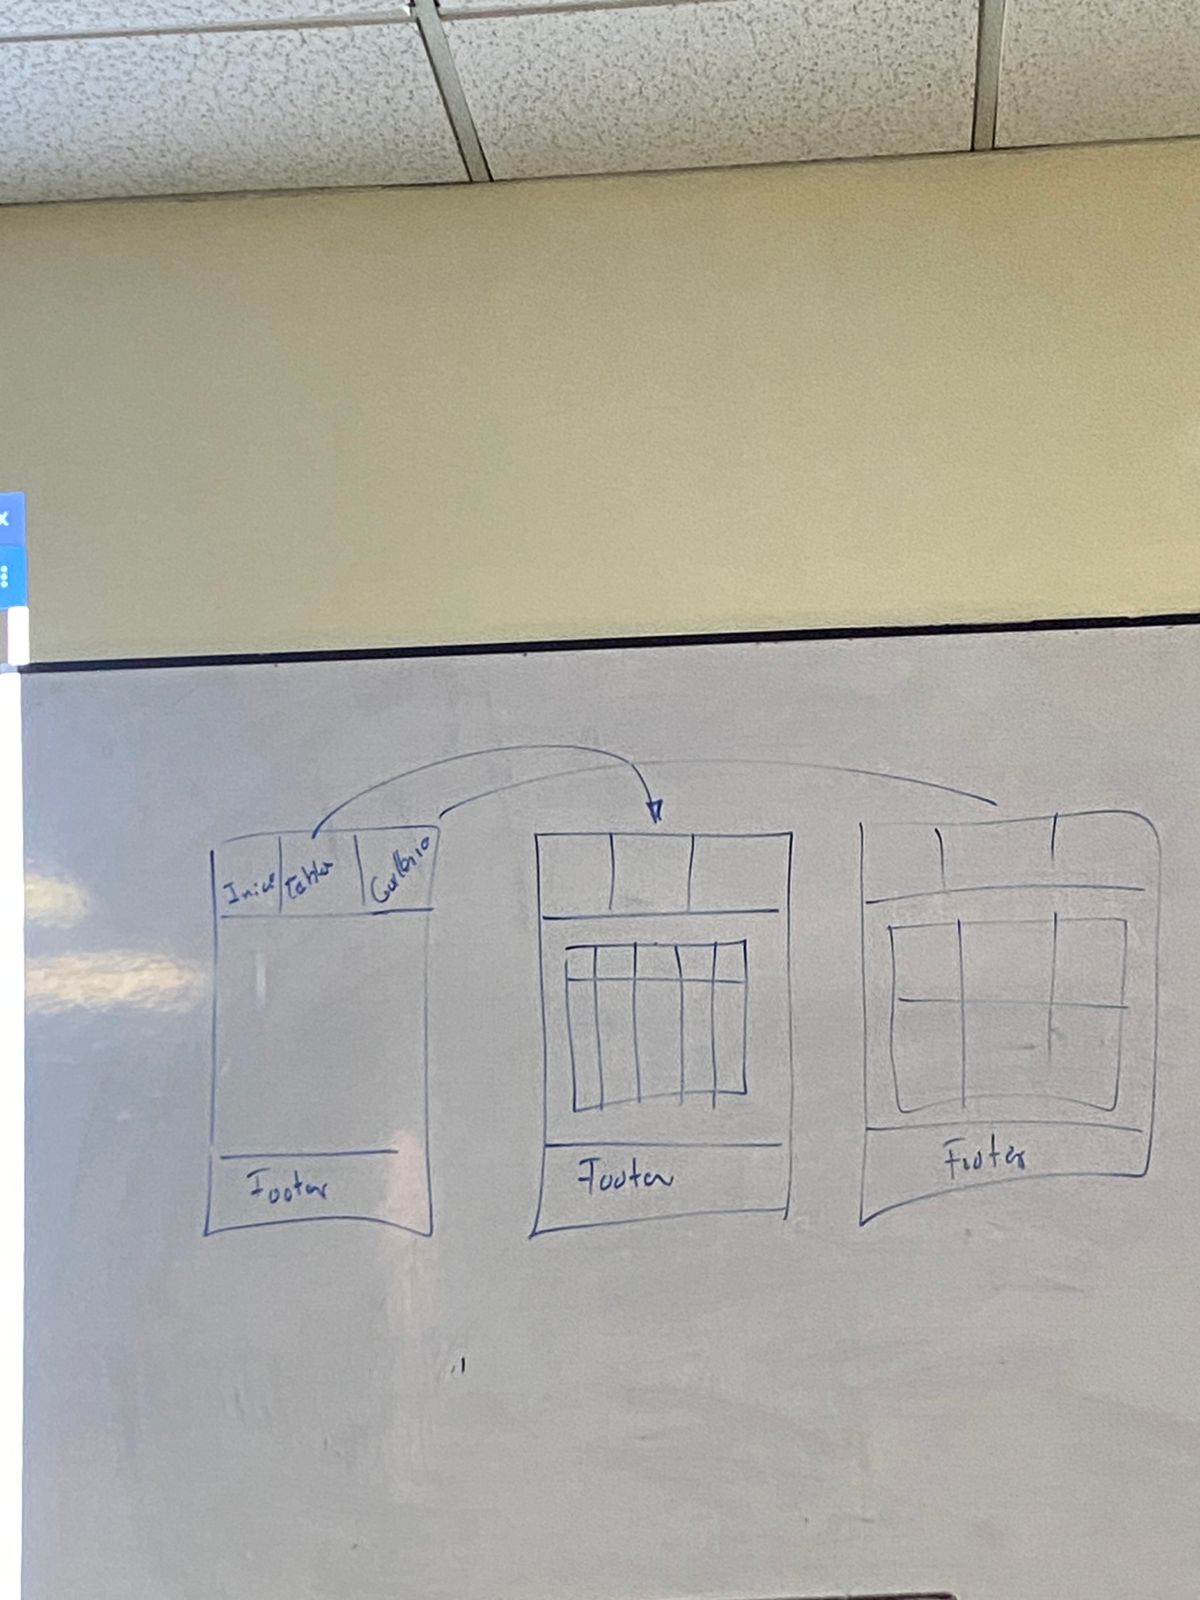 Inicio
tabla
Galleria
Footer
Footer
Footer